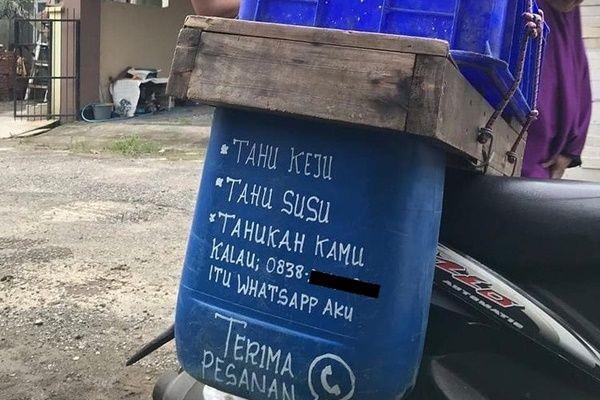 * TAHU KEJU
* TAHU SUSU
* TAHUKAH KAMU
KALAU; 0838-
ITU WHATSAPP AKU
TERIMA
PESANAN
AUTOMATIC